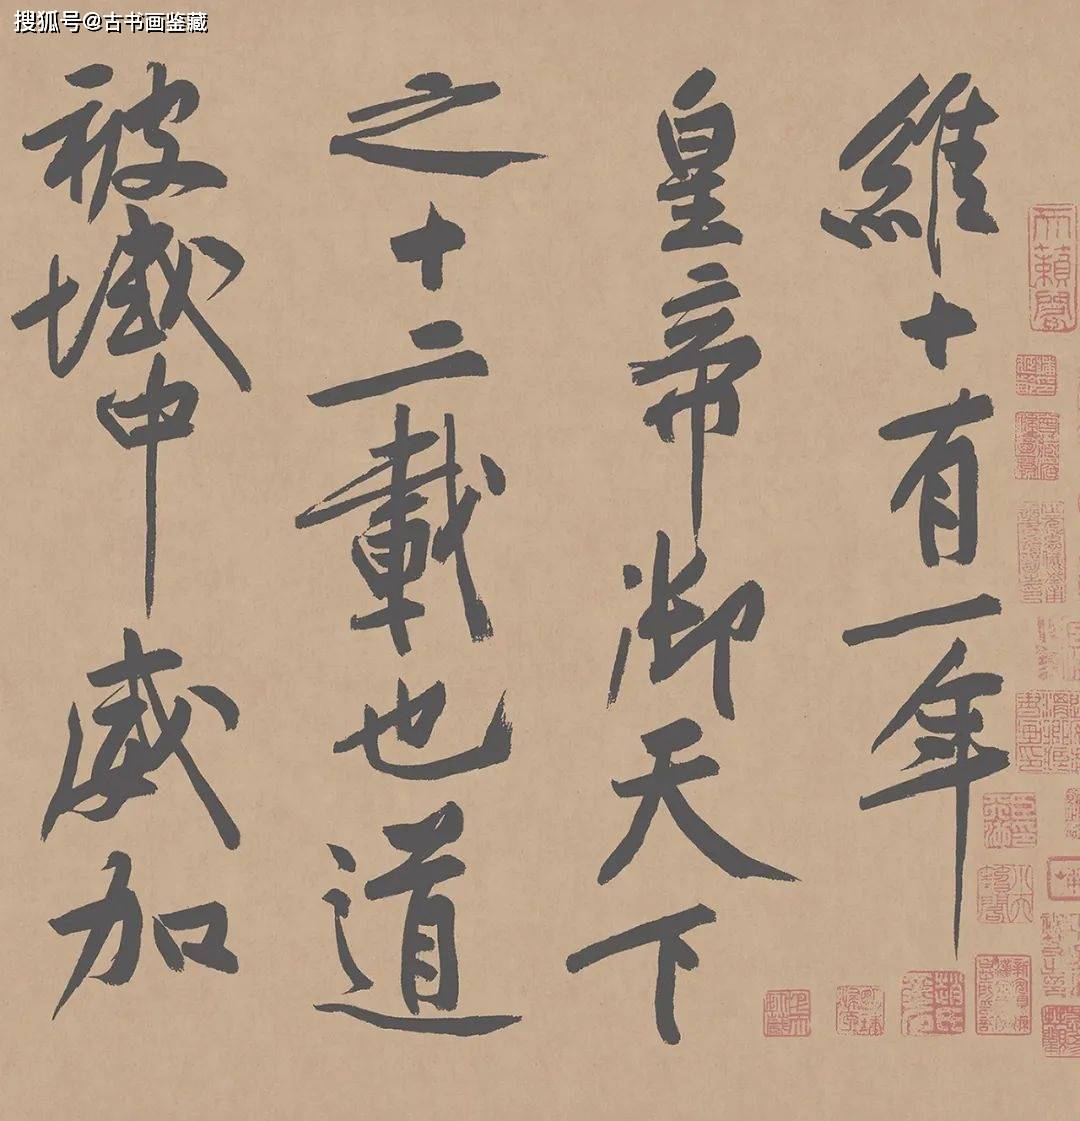 搜狐号@古书画鉴藏
維十有一年
皇帝御天下
之十二載也道
被域中威加
天籁阁